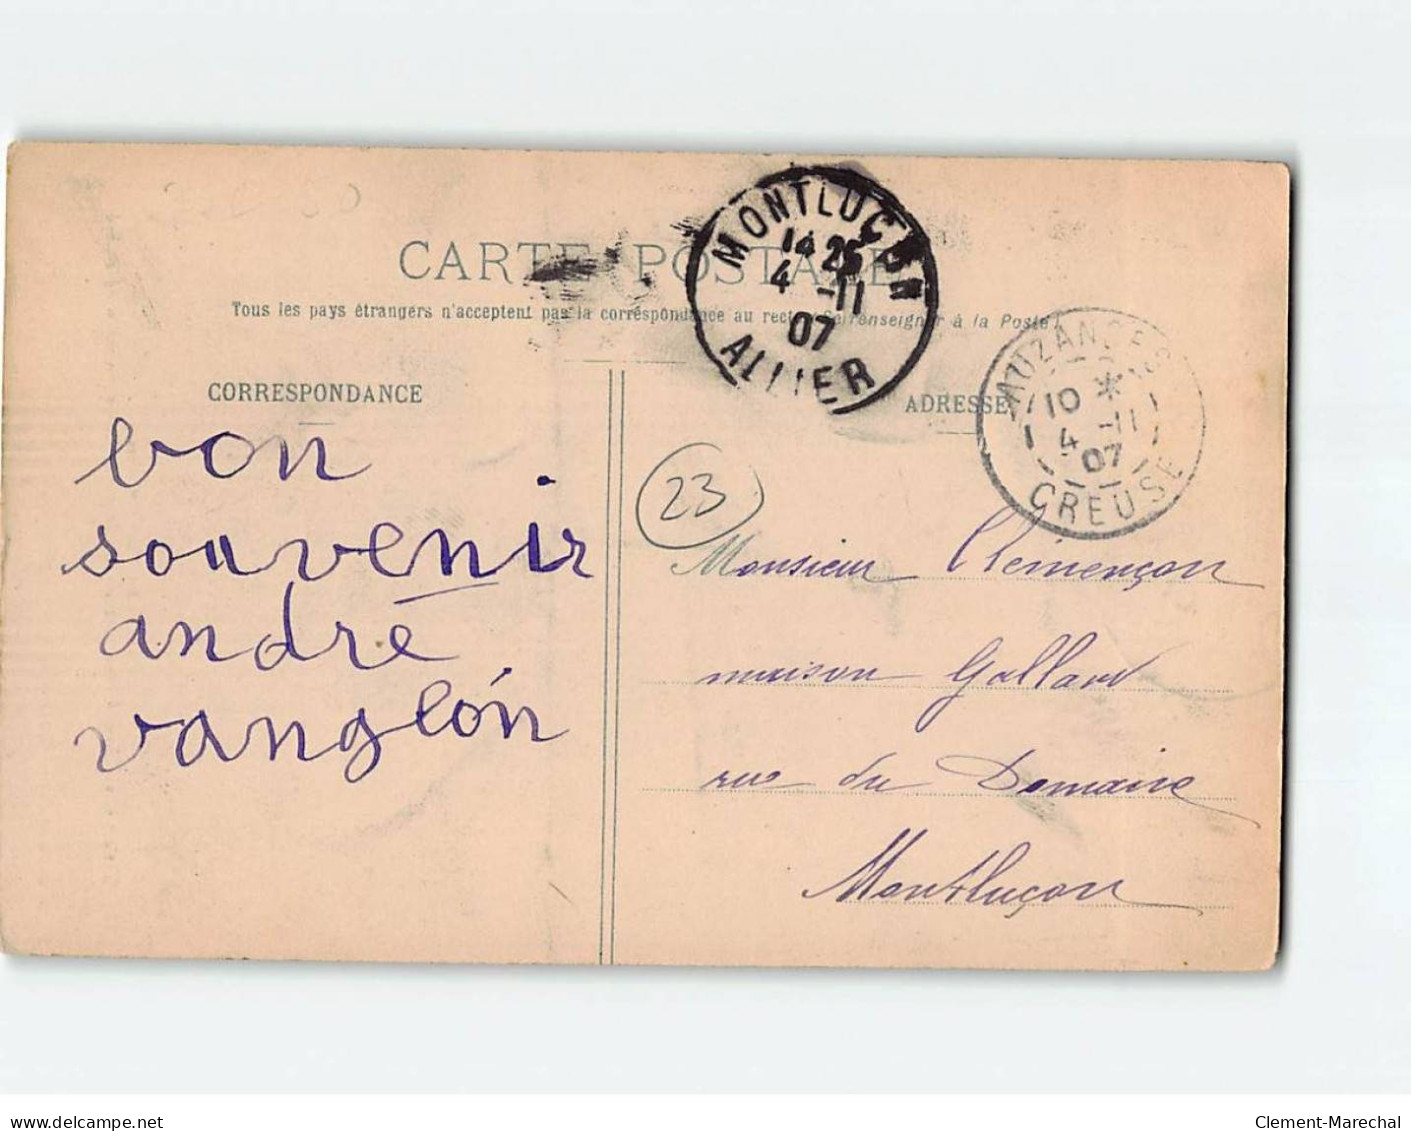 CARTE POSTALE
Tous les pays étrangers n'acceptent pas la correspondance au recto. Se renseigner à la Poste!
MONTLUÇON
14 25
4 -11
07
ALLIER
CORRESPONDANCE
ADRESSE
AUZANCES
10 *
4 -11
07
CREUSE
bon
souvenir
andré
vanglón
23
Monsieur Clémençon
maison Galland
rue du Domaine
Montluçon
www.delcampe.net
Clement-Marechal